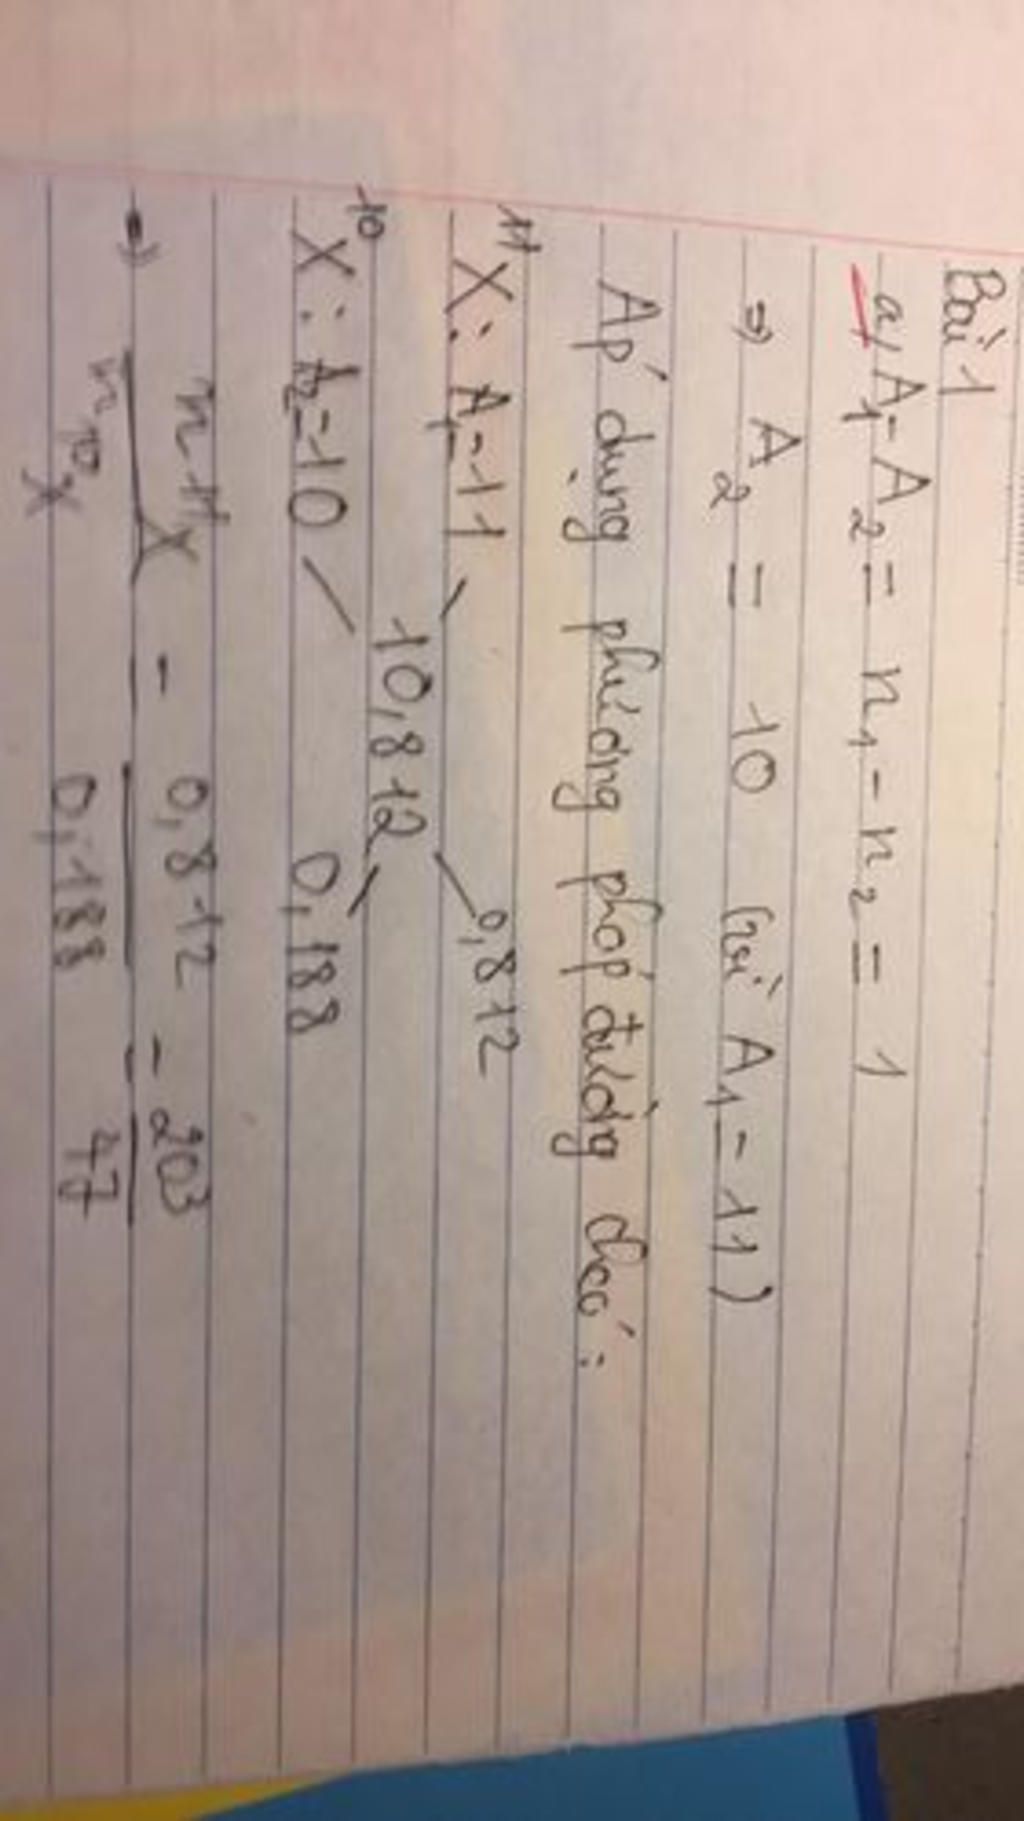 Bài 1
a, A₁ - A₂ = n₁ - n₂ = 1
⇒ A₂ = 10 (vì A₁ = 11)
Áp dụng phương pháp đường chéo:
¹¹X: A₁ = 11 0,812
10,812
¹⁰X: A₂ = 10 0,188
⇒ n ¹¹X / n ¹⁰X = 0,812 / 0,188 = 203 / 47